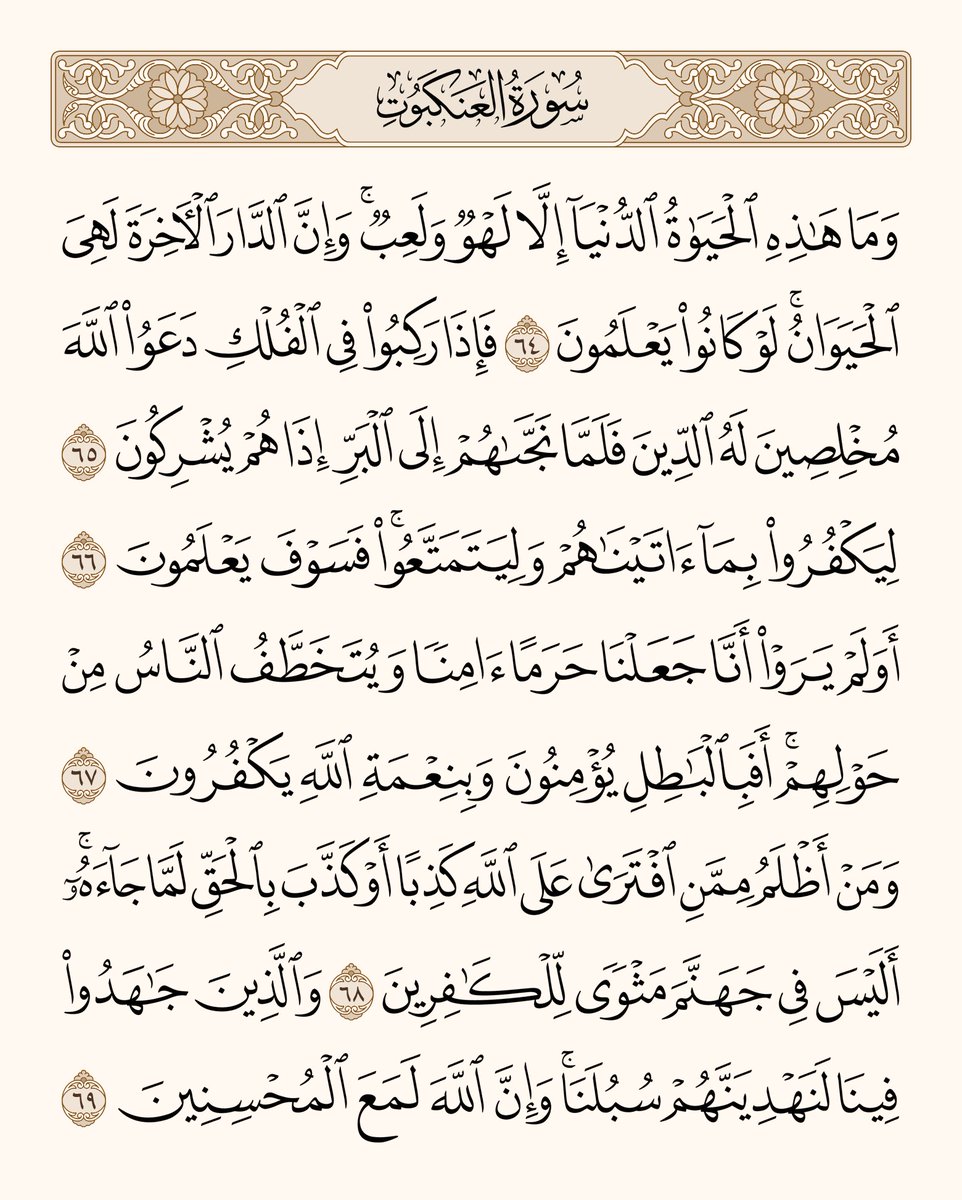 سُورَةُ الْعَنكَبُوتِ
وَمَا هَـٰذِهِ ٱلْحَيَوٰةُ ٱلدُّنْيَآ إِلَّا لَهْوٌ وَلَعِبٌ ۚ وَإِنَّ ٱلدَّارَ ٱلْـَٔاخِرَةَ لَهِىَ
ٱلْحَيَوَانُ ۚ لَوْ كَانُوا۟ يَعْلَمُونَ ٦٤ فَإِذَا رَكِبُوا۟ فِى ٱلْفُلْكِ دَعَوُا۟ ٱللَّهَ
مُخْلِصِينَ لَهُ ٱلدِّينَ فَلَمَّا نَجَّىٰهُمْ إِلَى ٱلْبَرِّ إِذَا هُمْ يُشْرِكُونَ ٦٥
لِيَكْفُرُوا۟ بِمَآ ءَاتَيْنَـٰهُمْ وَلِيَتَمَتَّعُوا۟ ۚ فَسَوْفَ يَعْلَمُونَ ٦٦
أَوَلَمْ يَرَوْا۟ أَنَّا جَعَلْنَا حَرَمًا ءَامِنًا وَيُتَخَطَّفُ ٱلنَّاسُ مِنْ
حَوْلِهِمْ ۚ أَفَبِٱلْبَـٰطِلِ يُؤْمِنُونَ وَبِنِعْمَةِ ٱللَّهِ يَكْفُرُونَ ٦٧
وَمَنْ أَظْلَمُ مِمَّنِ ٱفْتَرَىٰ عَلَى ٱللَّهِ كَذِبًا أَوْ كَذَّبَ بِٱلْحَقِّ لَمَّا جَآءَهُۥٓ ۚ
أَلَيْسَ فِى جَهَنَّمَ مَثْوًى لِّلْكَـٰفِرِينَ ٦٨ وَٱلَّذِينَ جَـٰهَدُوا۟
فِينَا لَنَهْدِيَنَّهُمْ سُبُلَنَا ۚ وَإِنَّ ٱللَّهَ لَمَعَ ٱلْمُحْسِنِينَ ٦٩